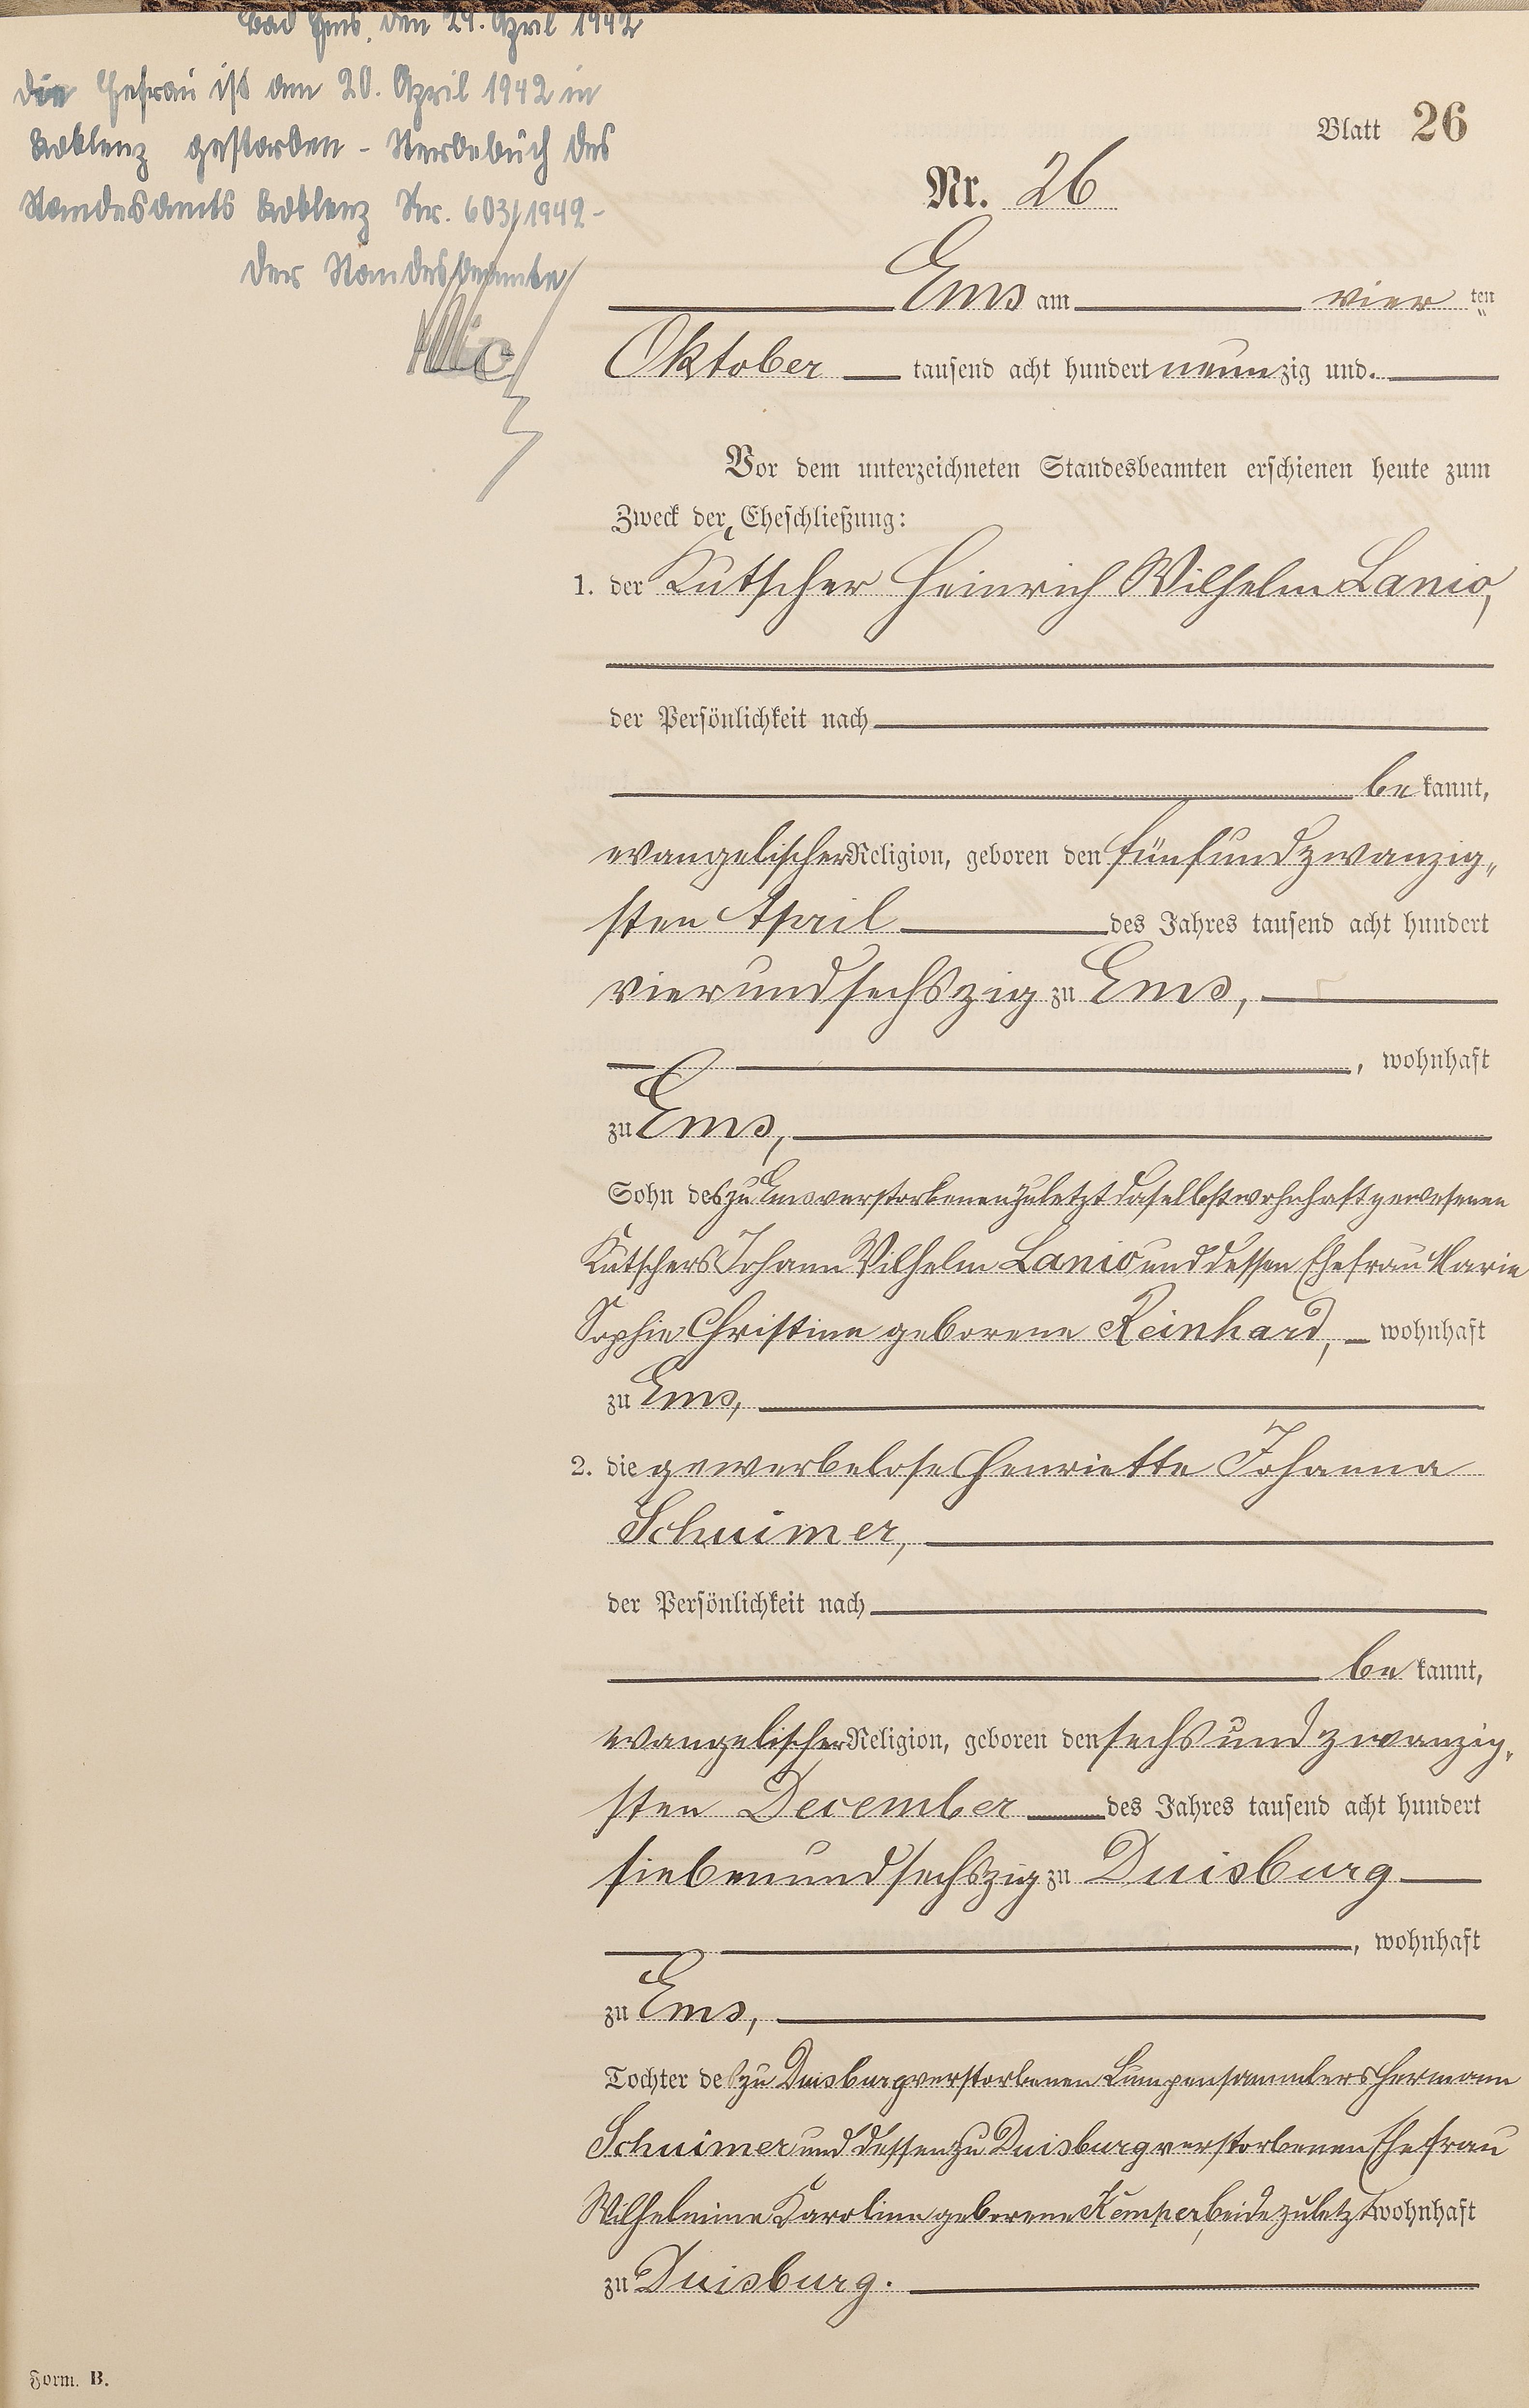 Bad Ems, den 24. April 1942
Die Ehefrau ist am 20. April 1942 in
Koblenz gestorben - Sterbebuch des
Standesamts Koblenz Nr. 603/1942 -
Der Standesbeamte
Blatt 26
Nr. 26
Ems am vier ten
Oktober tausend acht hundert neunzig und.
Vor dem unterzeichneten Standesbeamten erschienen heute zum
Zweck der Eheschließung:
1. der Kutscher Heinrich Wilhelm Lanio,
der Persönlichkeit nach
be kannt,
evangelischer Religion, geboren den fünfundzwanzig„
sten April des Jahres tausend acht hundert
vierundsechszig zu Ems,
, wohnhaft
zu Ems,
Sohn des zu Ems verstorbenen zuletzt daselbst wohnhaft gewesenen
Kutschers Johann Wilhelm Lanio und dessen Ehefrau Marie
Sophie Christine geborene Reinhard, wohnhaft
zu Ems,
2. die gewerbelose Henriette Johanna
Schuimer,
der Persönlichkeit nach
be kannt,
evangelischer Religion, geboren den sechsundzwanzig„
sten December des Jahres tausend acht hundert
siebenundsechszig zu Duisburg
, wohnhaft
zu Ems,
Tochter des zu Duisburg verstorbenen Lumpensammlers Hermann
Schuimer und dessen zu Duisburg verstorbenen Ehefrau
Wilhelmine Karoline geborene Kemper, beide zuletzt wohnhaft
zu Duisburg.
Form. B.